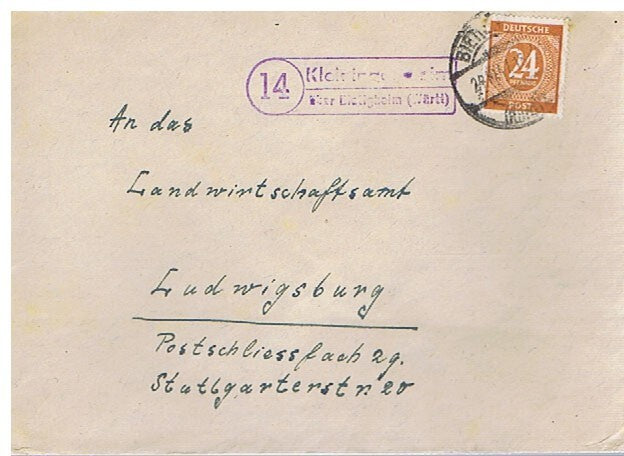 14
über Bietigheim (Württ)
DEUTSCHE
24
PFENNIG
POST
An das
Landwirtschaftsamt
Ludwigsburg
Postschliessfach 29.
Stuttgarterstr 20